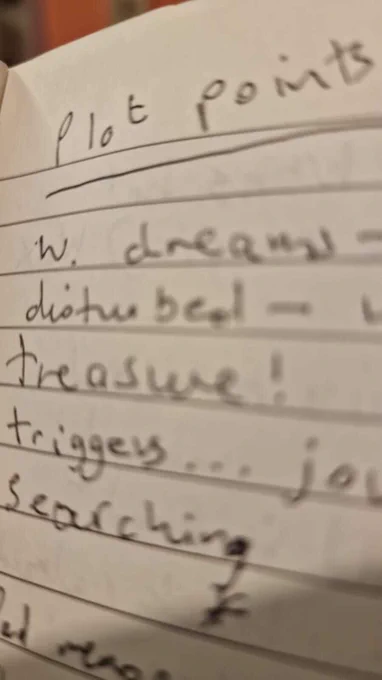 Plot points
W. dreams -
disturbed -
treasure!
triggers... jou
searching